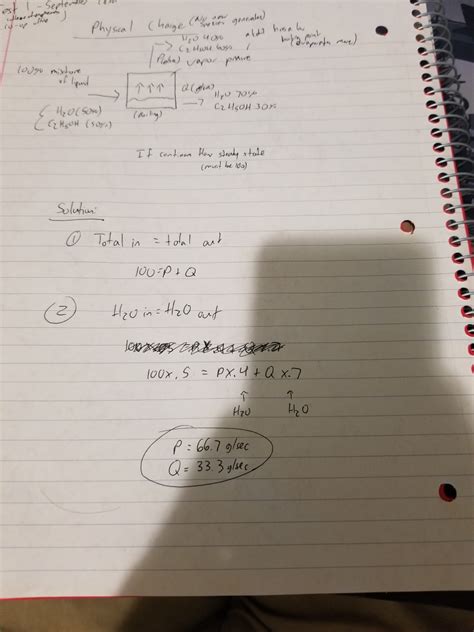 Test 1 - September
Physical Change (No new species generated)
H₂O 40%
C₂H₅OH 60%
P(gas) vapor phase
100g/s mixture of liquid
H₂O (50%)
C₂H₅OH (50%)
(boiling)
H₂O 70%
C₂H₅OH 30%
If continuous flow steady state
(must be 100)
Solution:
① Total in = total out
100 = P + Q
② H₂O in = H₂O out
100x.5 = Px.4 + Qx.7
H₂O H₂O
P = 66.7 g/sec
Q = 33.3 g/sec